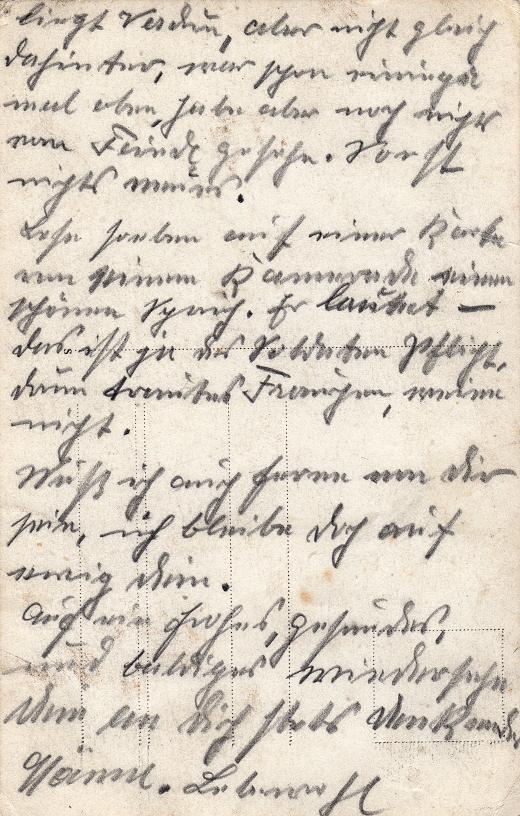 liegt Verdun, aber nicht gleich
dahinter, war schon einige
mal oben, habe aber noch nichts
vom Feinde gesehn. Sonst
nichts neues.
Lese soeben auf einer Karte
von einem Kamerade einen
schönen Spruch. Er lautet —
das ist ja des Soldaten Pflicht,
drum trautes Frauchen, weine
nicht.
Muß ich auch ferne von dir
sein, ich bleibe doch auf
ewig dein.
Auf ein frohes, gesundes,
und baldiges wiedersehn
dein an dich stets denkender
Männe. Lebewohl